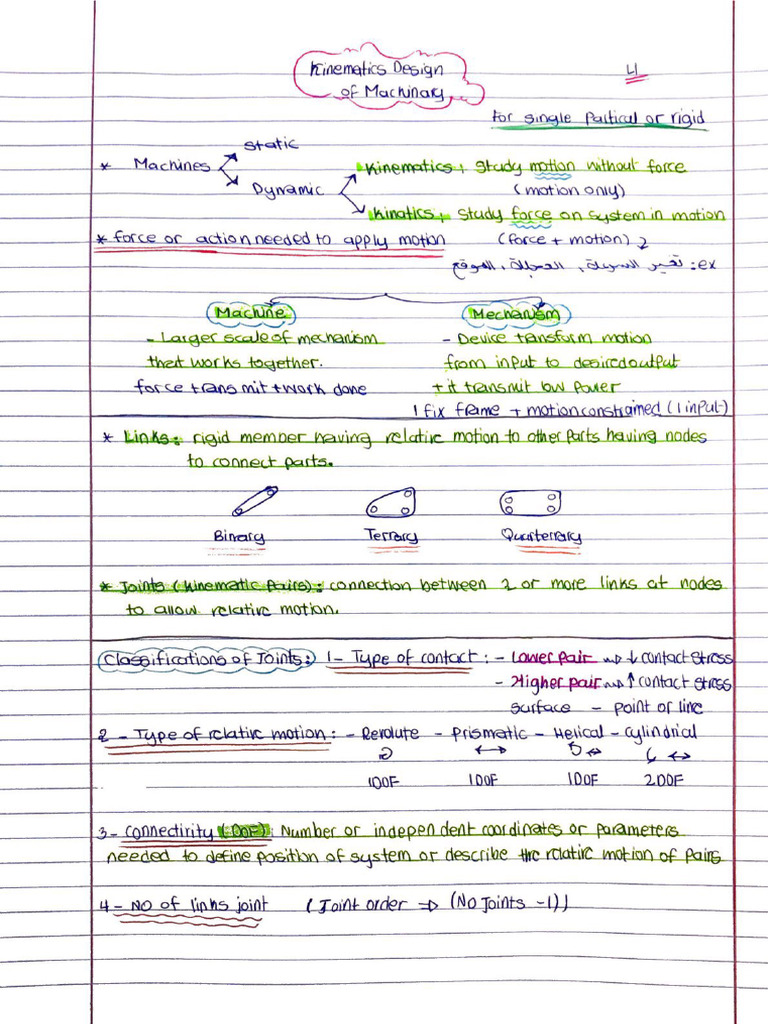 Kinematics Design
of Machinary
L1
For single Partical or rigid
* Machines
Static
Dynamic
Kinematics; Study motion without force
(motion only)
Kinatics; Study force on system in motion
(force + motion)
* force or action needed to apply motion
ex: تغير السرعة, العجلة, الموقع
Machine
- Larger scale of mechanism
that works together.
force transmit + work done
Mechanism
- Device transform motion
from input to desired output
+ it transmit low power
1 fix frame + motion constrained (1 input)
* Links: rigid member having relative motion to other parts having nodes
to connect parts.
Binary Terrary Quarterrary
* Joints (kinematic Pairs): connection between 2 or more links at nodes
to allow relative motion.
Classifications of Joints: 1- Type of contact: - Lower pair ⇝ ↓ contact stress
- Higher pair ⇝ ↑ contact stress
surface - point or line
2 - Type of relative motion: - Revolute - Prismatic - Helical - Cylindrial
1DOF 1DOF 1DOF 2DOF
3- Connectivity (DOF): Number or independent coordinates or parameters
needed to define position of system or describe the relative motion of pairs
4- No of links joint (Joint order ⇒ (No Joints -1))